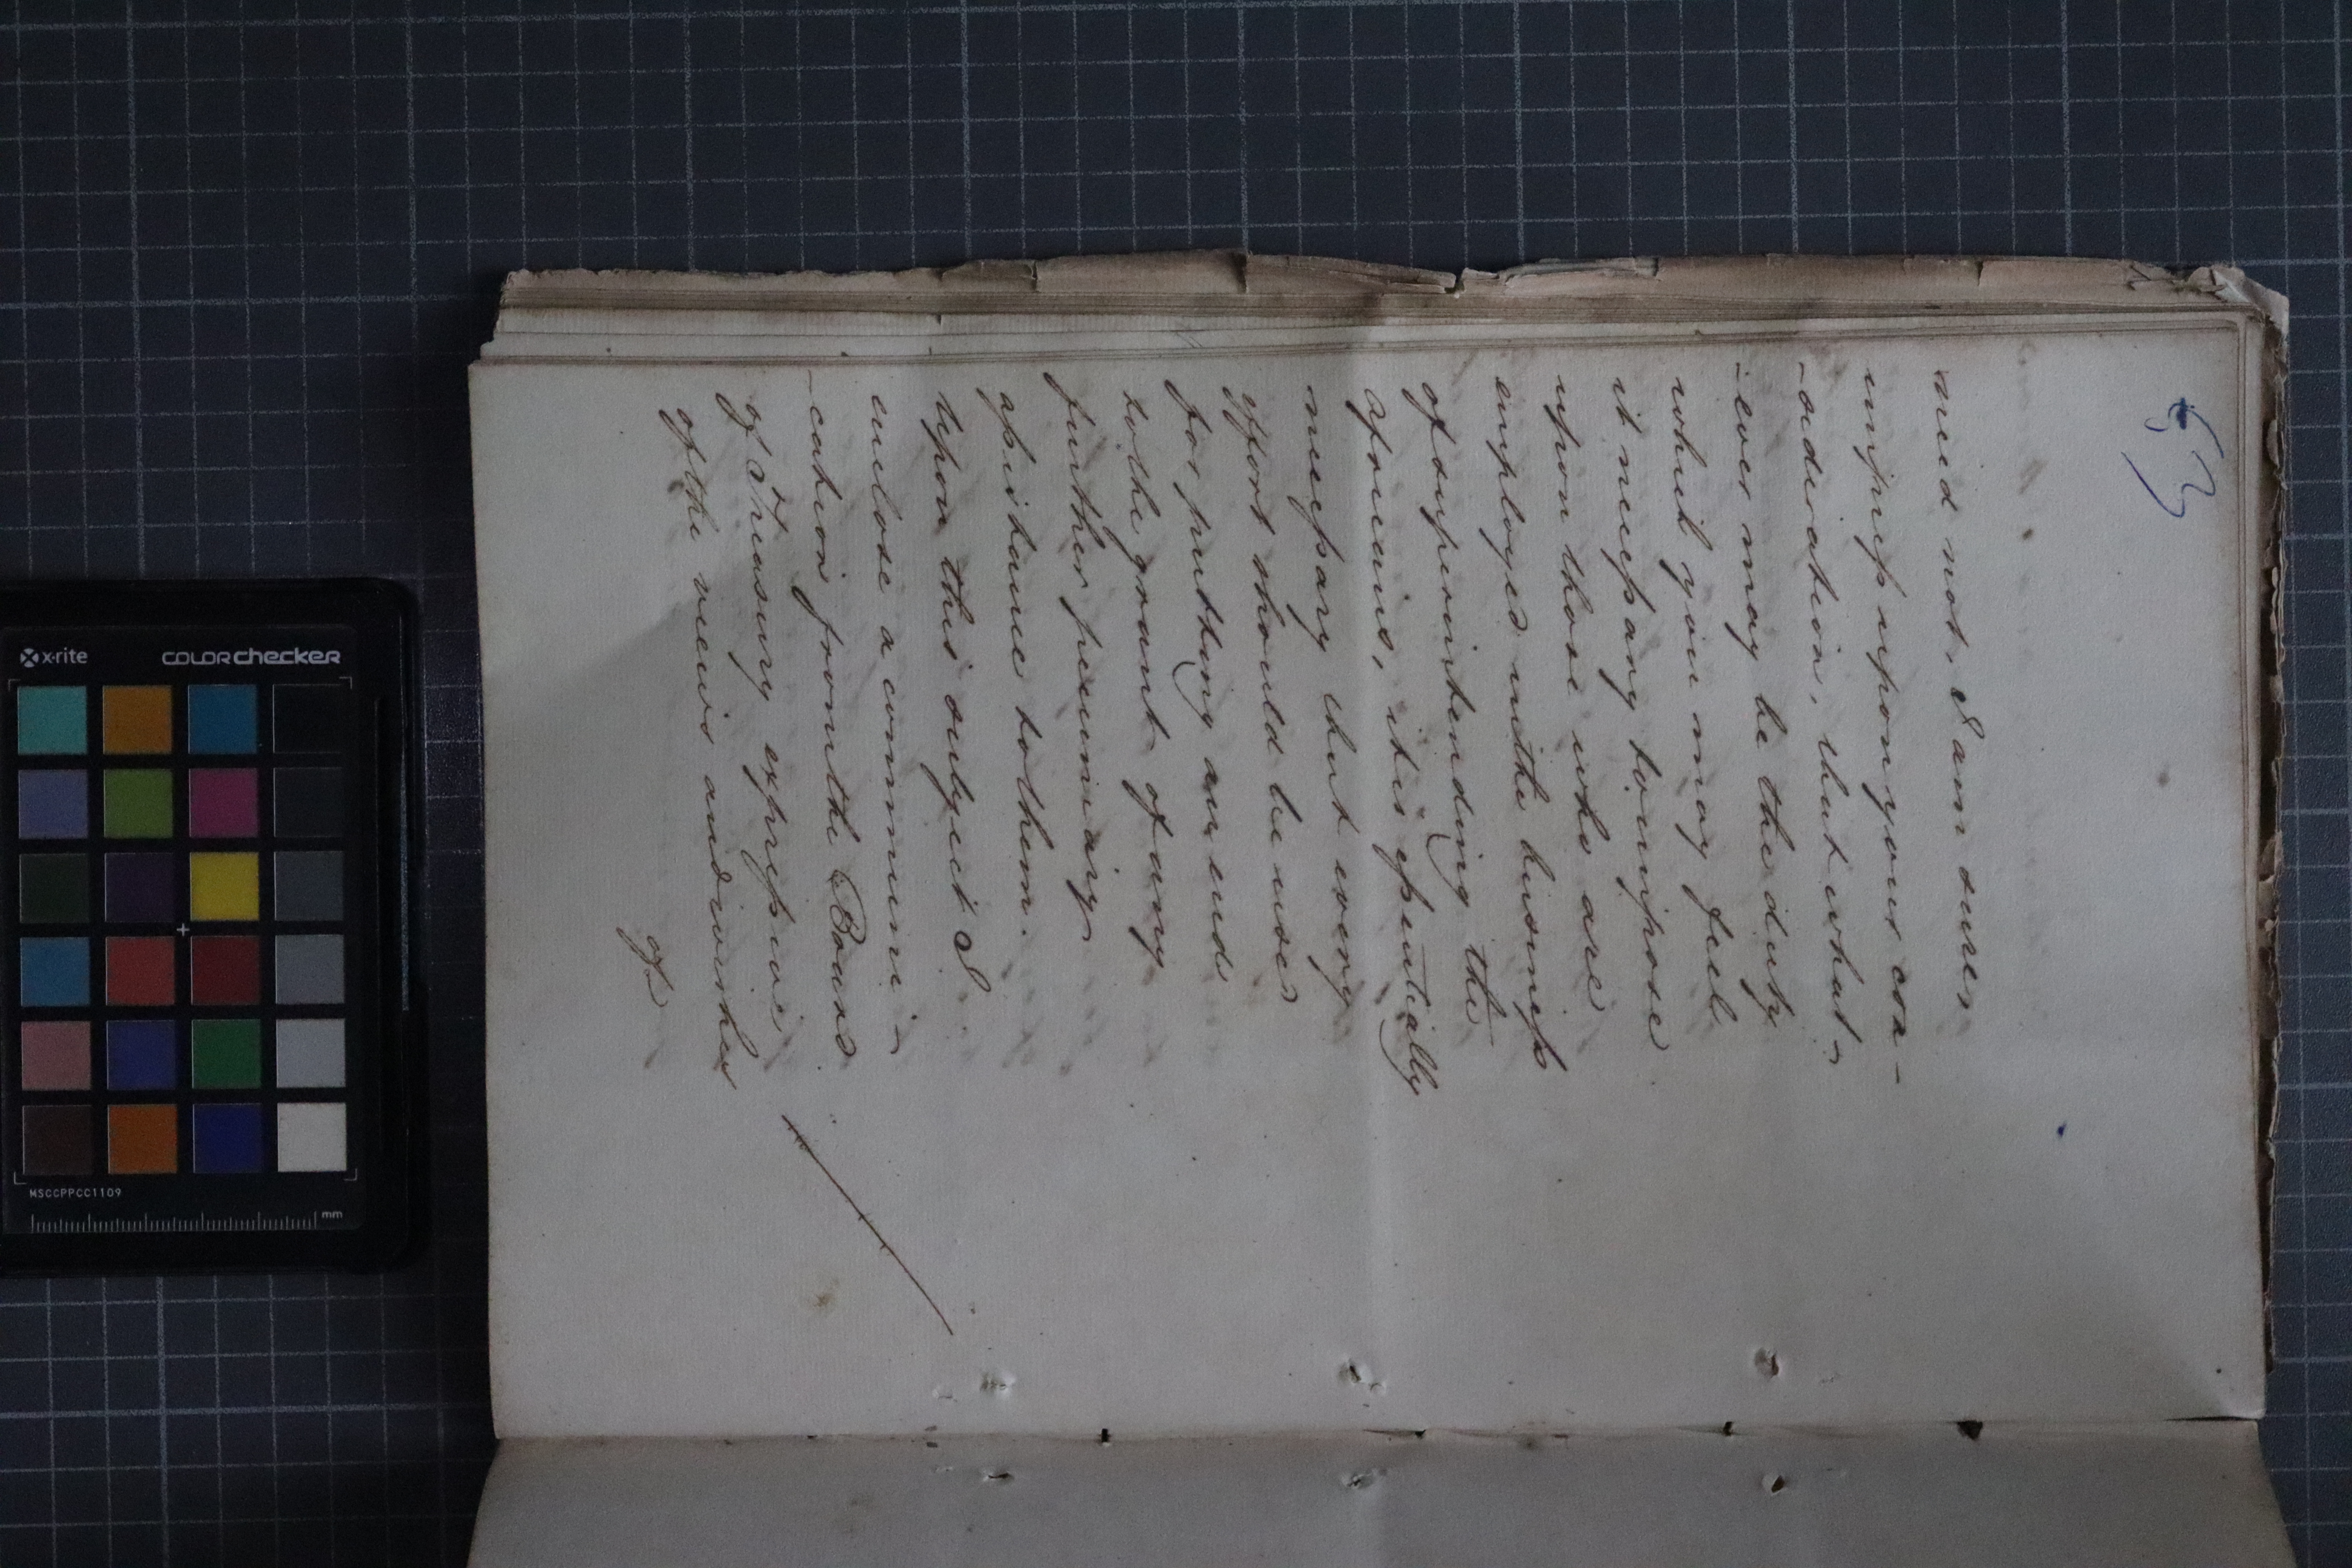 53
need not, I am sure,
impress upon your con-
-sideration, that what-
-ever may be the duty
which you may feel
it necessary to impose
upon those who are
employed in the business
of superintending the
aforesaid, it is essentially
necessary that every
effort should be used
for putting an end
to the grant of any
further pecuniary
assistance to them.
Upon this subject I
enclose a communi-
-cation from the Board
of Treasury expressive
of the views and wishes
of
x-rite
colorchecker
MSCCPPCC1109
mm